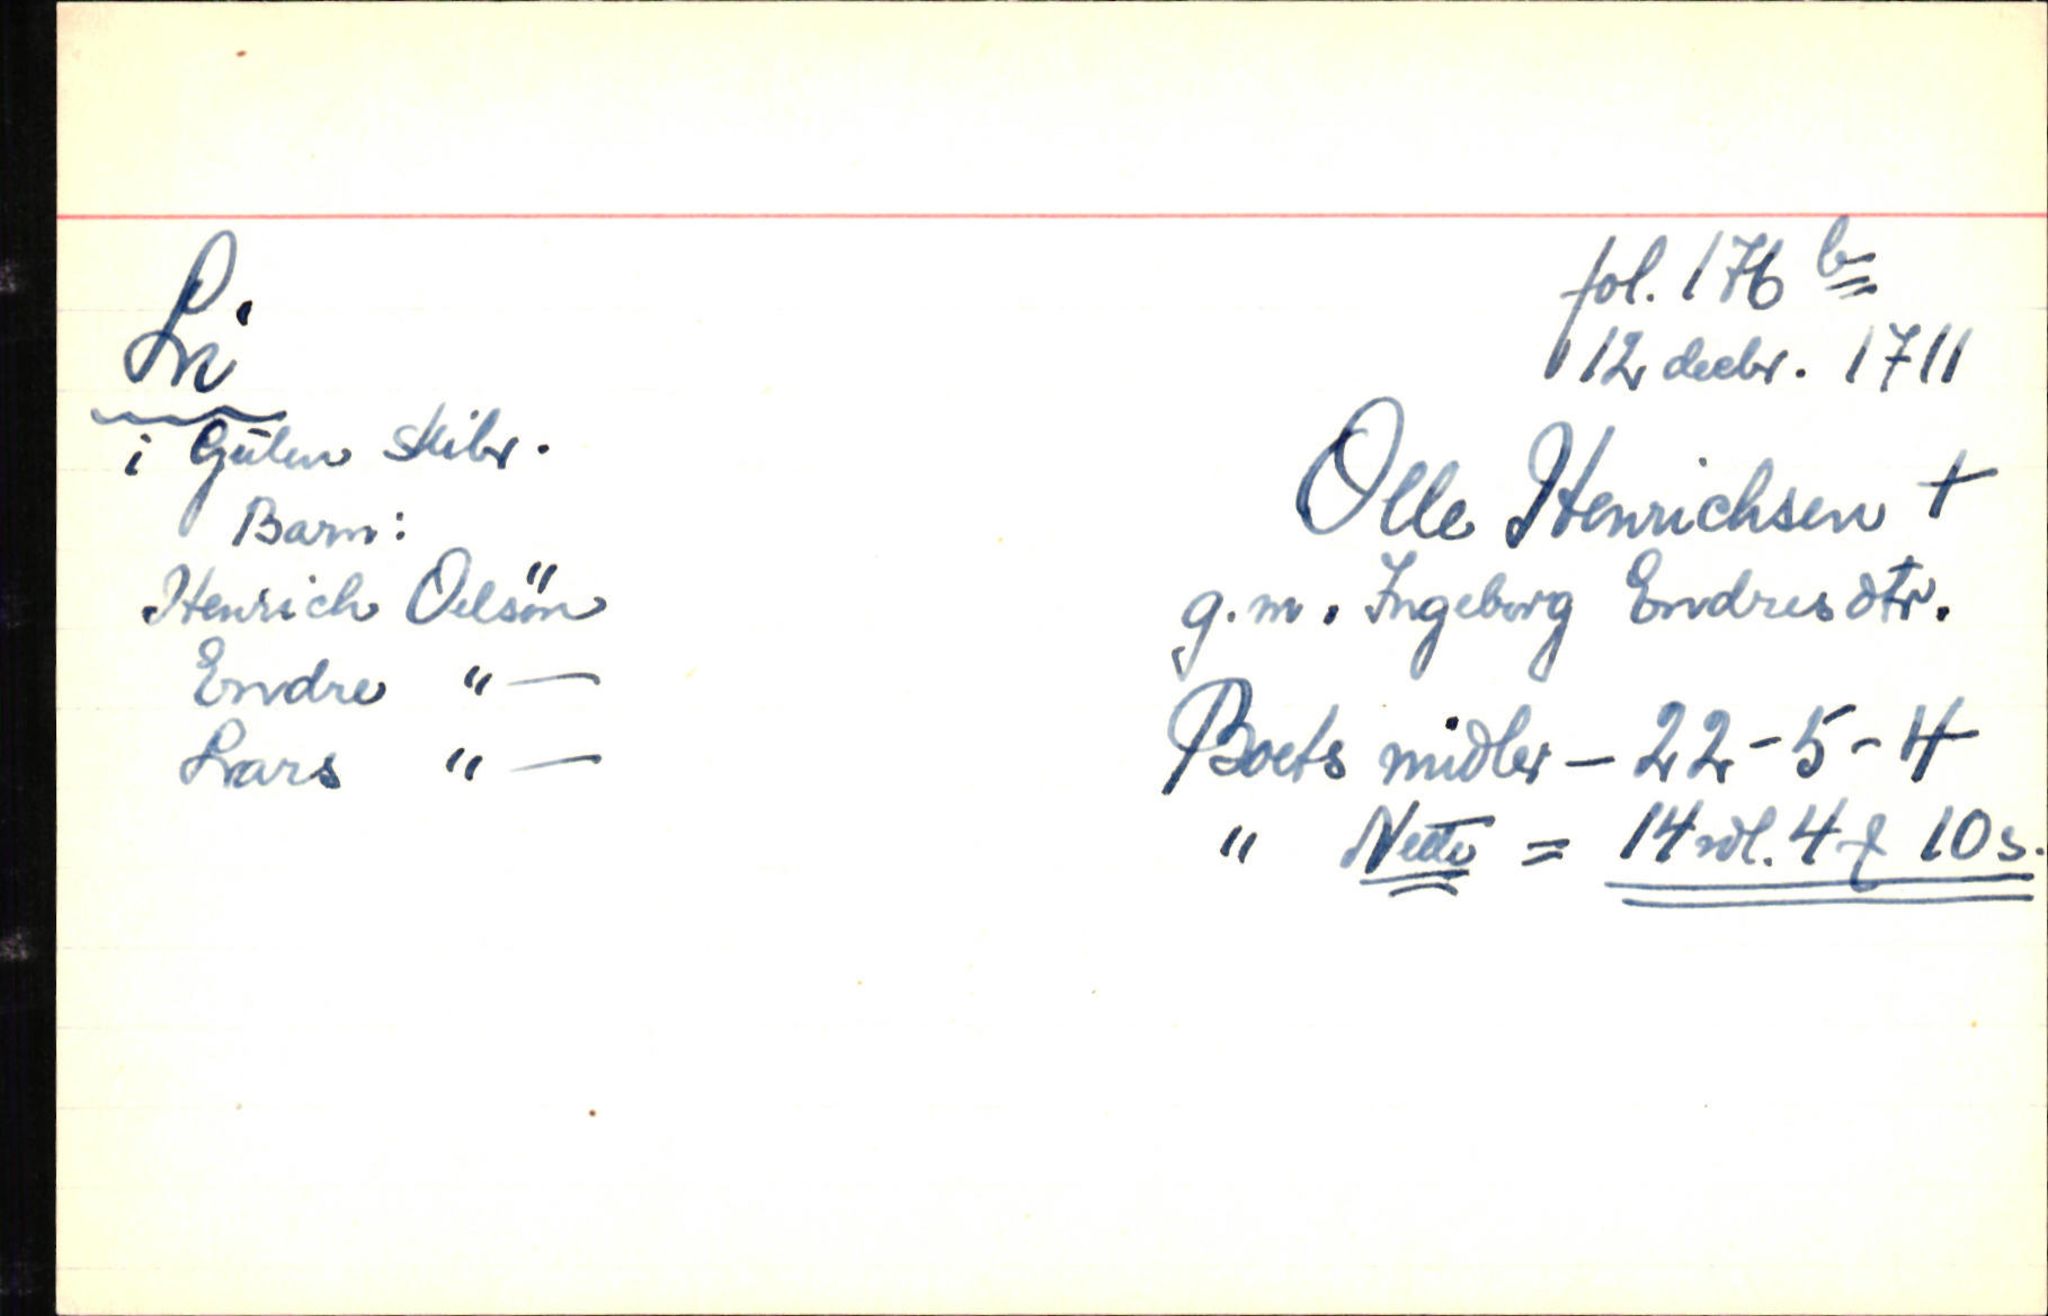 Li
i Gulen Skibr.
Barn:
Henrich Oelsön
Endre "—
Lars "—
fol. 176 b
12 decbr. 1711
Olle Henrichsen +
g.m. Ingeborg Endresdtr.
Boets midler – 22-5-4
" Netto = 14 rdl. 4 ƒ 10 s.